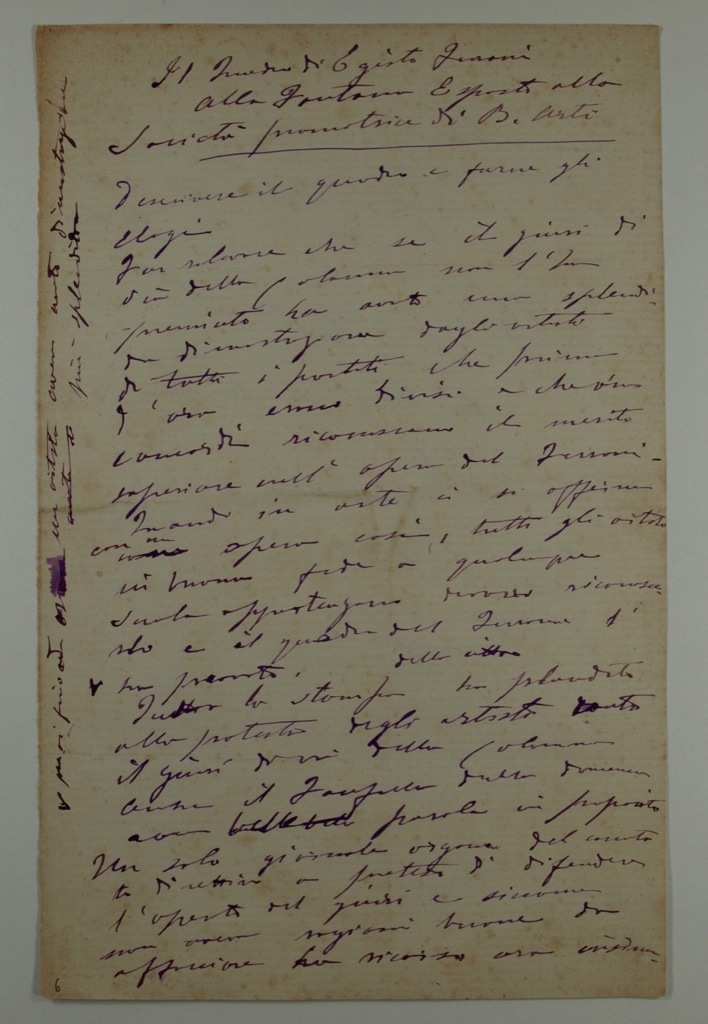 Il Quadro di Egisto Ferroni
Alla Fontana Esposto alla
Società promotrice di B. Arti
Descrivere il quadro e farne gli
elogi
Far rilevare che se il giurì di
via della Colonna non l'ha
premiato ha avuto una splendi-
da dimostrazione dagli artisti
di tutti i partiti che prima
d'ora erano divisi e che ora
concordi riconoscono il merito
superiore nell' opera del Ferroni-
Quando in arte ci si afferma
con un opera così, tutti gli artisti
in buona fede a qualunque
scuola appartengano devono riconoscer-
lo e il quadro del Ferroni l'
ha provato.
Tutta la stampa della città ha plaudito
alla protesta degli artisti contro
il giurì di via della Colonna
anche il Fanfulla della domenica
aveva parole in proposito
Un solo giornale organo del comita-
to direttivo a preteso di difendere
l'operato del giurì e siccome
non aveva ragioni buone da
affacciare ha ricorso
v mai fino ad ora un artista aveva avuto dimostrazione
più splendida
6